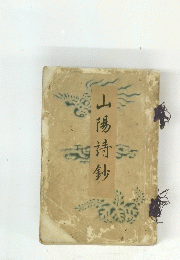 山陽詩鈔